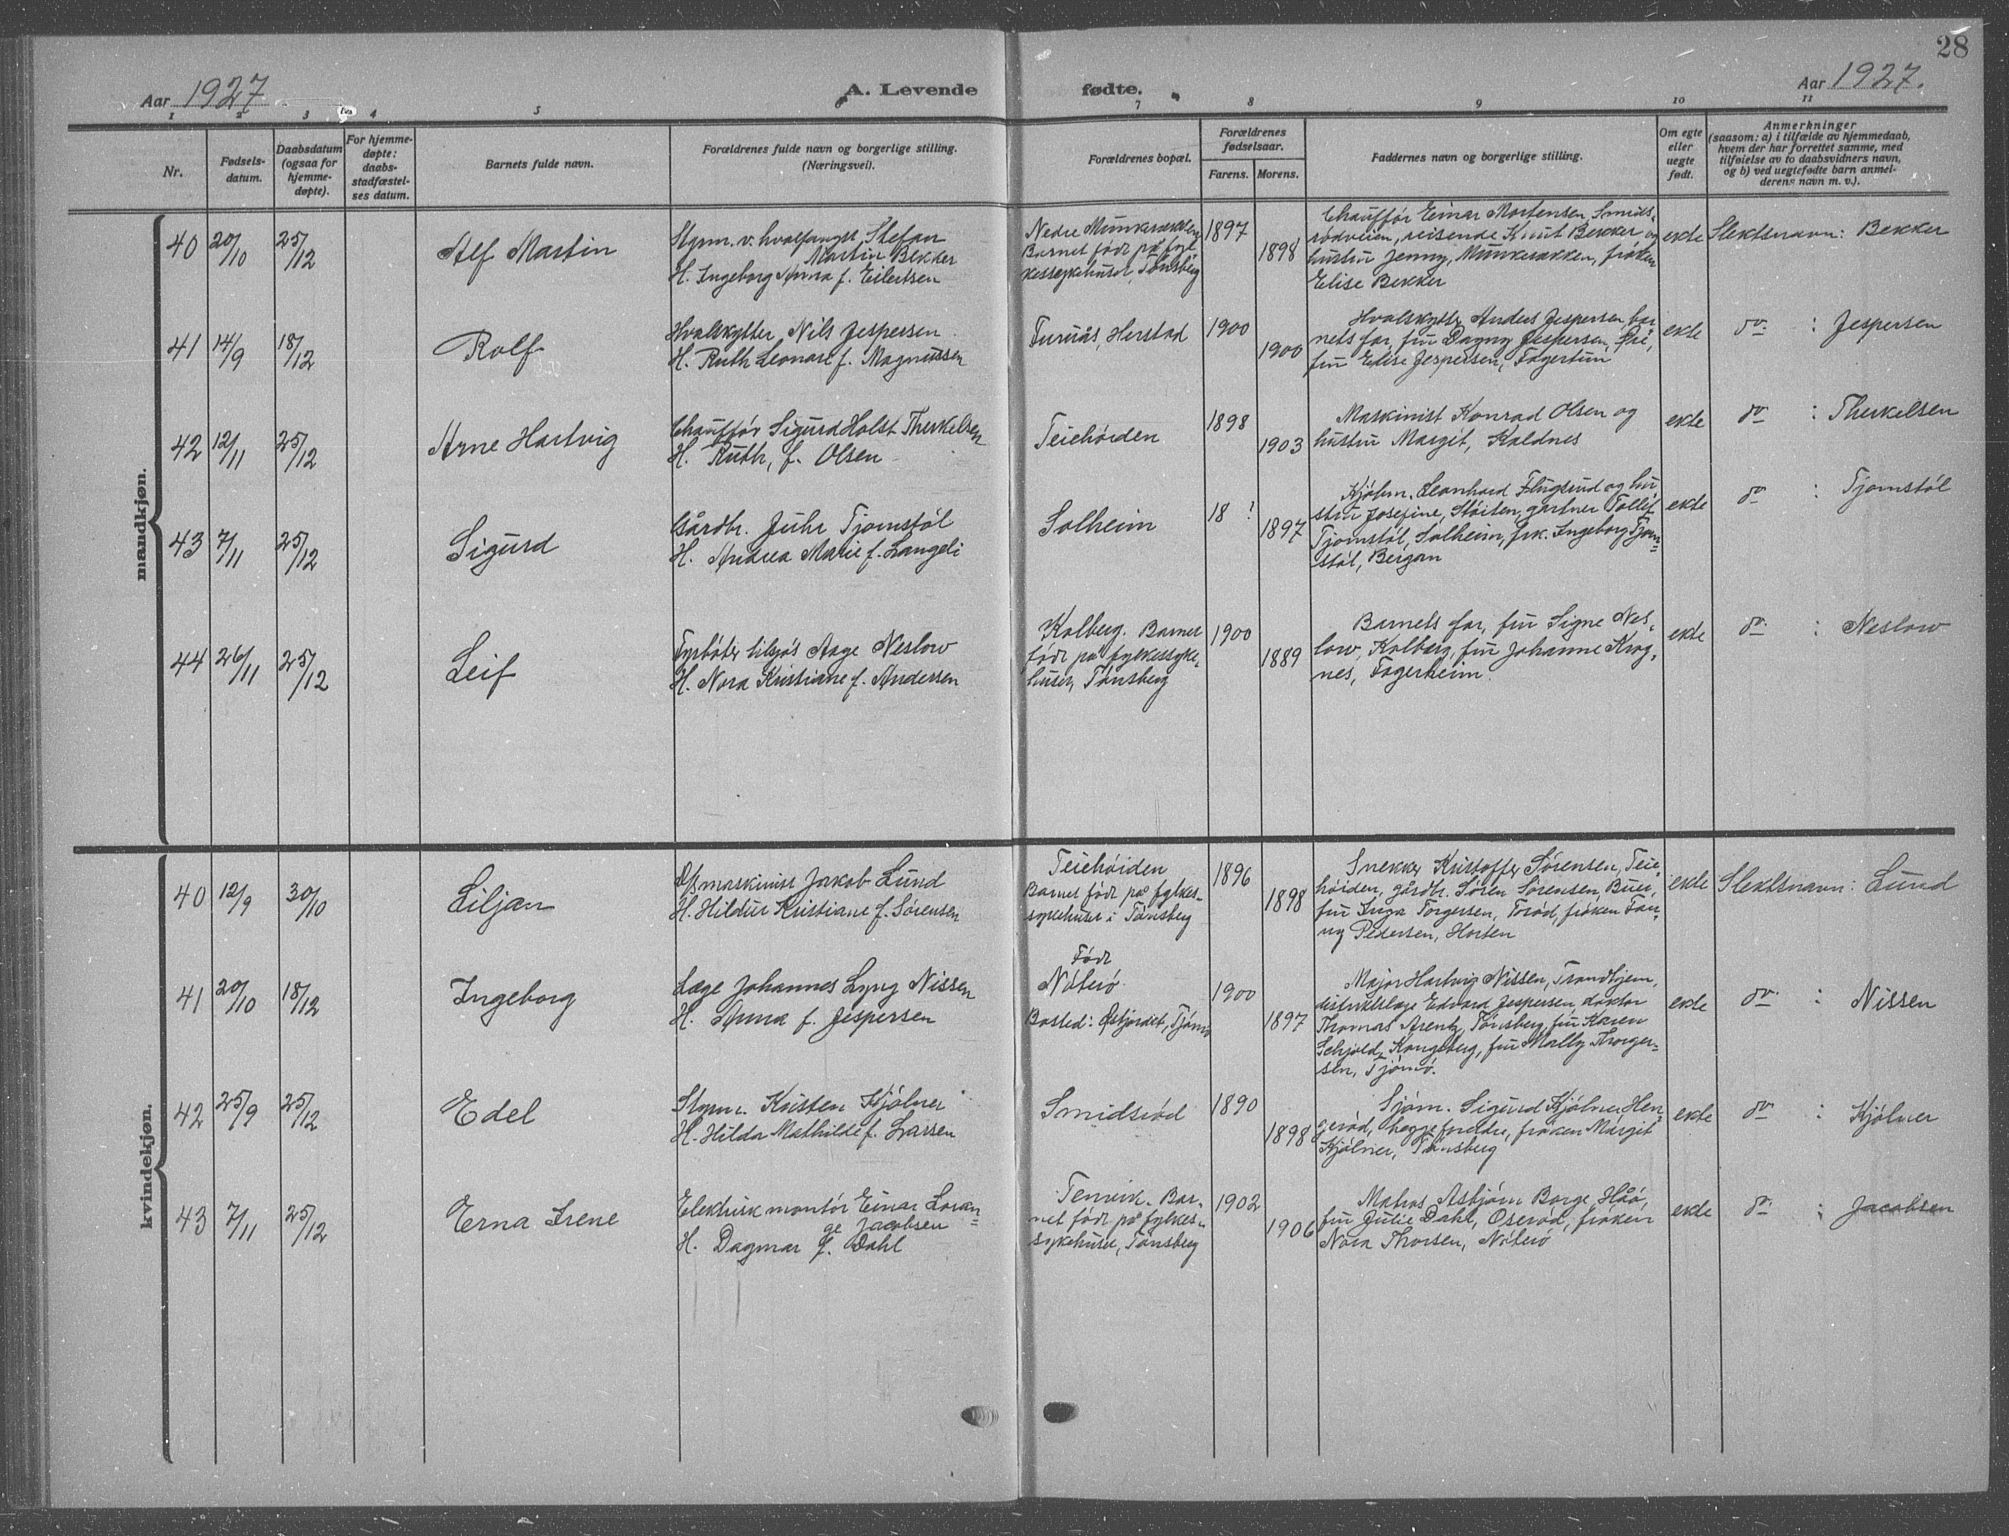 28
Aar 1927
A. Levende
fødte.
Aar 1927.
1 2 3 4 5 7 8 9 10 11
Nr.
Fødsels-
datum.
Daabsdatum
(ogsaa for
hjemme-
døpte).
For hjemme-
døpte:
daabs-
stadfæstel-
ses datum.
Barnets fulde navn.
Forældrenes fulde navn og borgerlige stilling.
(Næringsvei).
Forældrenes bopæl.
Forældrenes
fødselsaar.
Farens. Morens.
Faddernes navn og borgerlige stilling.
Om egte
eller
uegte
født.
Anmerkninger
(saasom: a) i tilfælde av hjemmedaab,
hvem der har forrettet samme, med
tilføielse av to daabsvidners navn,
og b) ved uegtefødte barn anmel-
derens navn m. v.).
mandkjøn.
40 20/10 25/12 Alf Martin
Styrm. v. hvalfangst, Stefan
Martin Bekker
H. Ingeborg Anna f. Eilertsen
Nedre Munkerekken
Barnet født på fyl-
kessykehuset, Tønsberg
1897
1898
Chauffør Einar Mortensen, Smids-
rødveien, reisende Knut Bekker og
hustru Jenny, Munkerekken, frøken
Elise Bekker
ekte
Slektsnavn: Bekker
41 14/9 18/12 Rolf
Hvalskytter Nils Jespersen
H. Ruth Leonare f. Magnussen
Furuås, Herstad
1900
1900
Hvalskytter Anders Jespersen, bar-
nets far, fru Dagny Jespersen, Øie,
fru Elise Jespersen, Fagertun
ekte
do : Jespersen
42 12/11 25/12 Arne Hartvig
Chauffør Sigurd Holst Therkelsen
H. Ruth, f. Olsen
Teiehøiden
1898
1903
Maskinist Konrad Olsen og
hustru Margit, Kaldnes
ekte
do : Therkelsen
43 7/11 25/12 Sigurd
Gårdbr. Juhr Tjomstøl
H. Andrea Marie f. Langeli
Solheim
18 ?
1897
Kjøbm. Leonhard Flugsrud og hu-
stru Josefine, Støiten, gartner Tollef
Tjomstøl, Solheim, frk. Ingeborg Tjom-
støl, Bergan
ekte
do : Tjomstøl
44 26/11 25/12 Leif
Fyrbøter tilsjøs Aage Neslow
H. Nora Kristiane f. Andersen
Kolberg. Barnet
født på fylkessyke-
huset, Tønsberg
1900
1889
Barnets far, fru Signe Nes-
low, Kolberg, fru Johanne Krog-
nes, Fagerheim.
ekte
do : Neslow
kvindekjøn.
40 12/9 30/10 Liljan
D/S maskinist Jakob Lund
H. Hildur Kristiane f. Sørensen
Teiehøiden
Barnet født på fylkes-
sykehuset i Tønsberg
1896
1898
Snekker Kristoffer Sørensen, Teie-
høiden, gårdbr. Søren Sørensen, Buer,
fru Inga Torgersen, Torød, frøken Fan-
ny Pedersen, Horten
ekte
Slektsnavn: Lund
41 20/10 18/12 Ingeborg
Læge Johannes Lyng Nissen
H. Anna f. Jespersen
Født
Nøterø
Bosted: Østjordet, Tjømø
1900
1897
Major Hartvig Nissen, Trondhjem,
distriktslæge Edvard Jespersen, doktor
Thomas Arentz, Tønsberg, fru Karen
Schjold, Kongsberg, fru Mally Thorger-
sen, Tjømø.
ekte
do : Nissen
42 25/9 25/12 Edel
Styrm. Kristen Kjølner
H. Hilda Mathilde f. Larsen
Smidsrød
1890
1898
Sjøm. Sigurd Kjølner, Hen-
gerød, begge foreldre, frøken Margit
Kjølner, Tønsberg
ekte
do : Kjølner
43 7/11 25/12 Erna Irene
Elektrisk montør Einar Loran-
ge Jacobsen
H. Dagmar f. Dahl
Tenvik. Bar-
net født på fylkes-
sykehuset, Tønsberg
1902
1906
Matros Asbjørn Borge, Håø,
fru Julie Dahl, Oserød, frøken
Nora Thorsen, Nøterø
ekte
do : Jacobsen